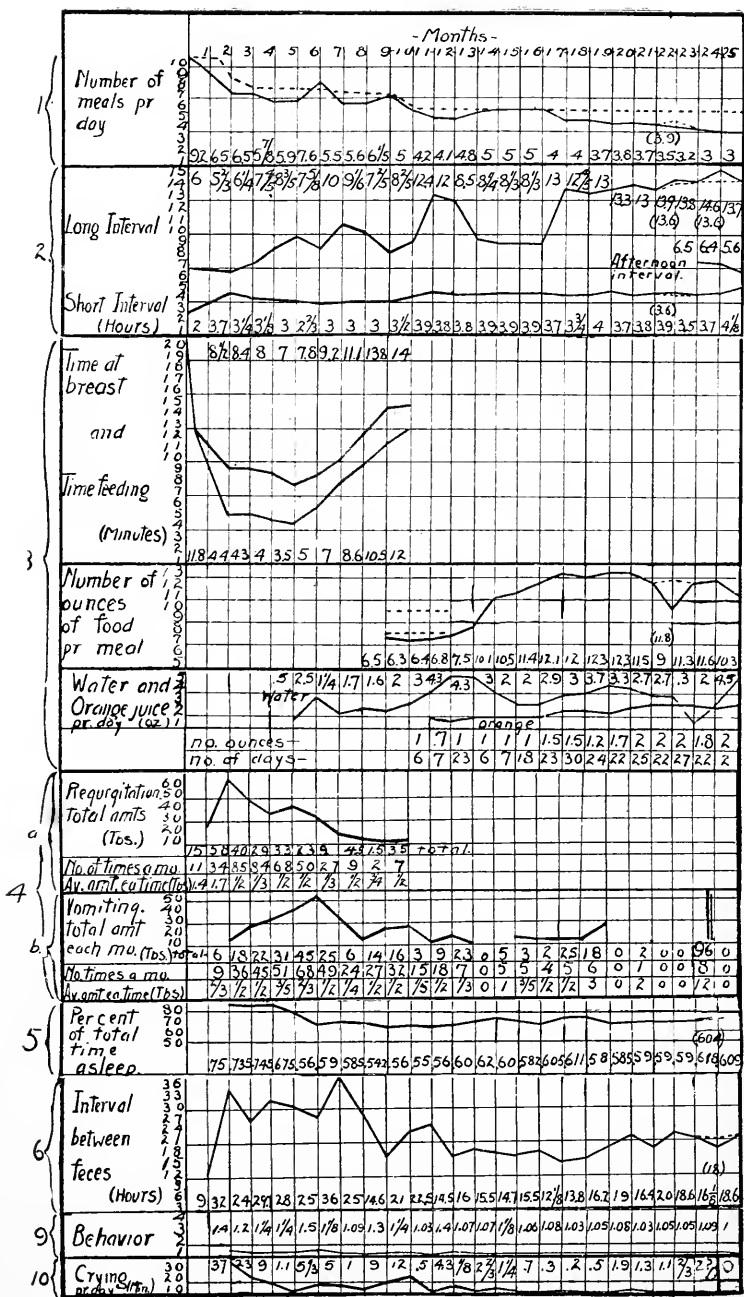 - Months -
1 2 3 4 5 6 7 8 9 10 11 12 13 14 15 16 17 18 19 20 21 22 23 24 25
1
Number of
meals pr
day
(3.9)
9.2 6.5 6.5 5 7/8 5.9 7.6 5.5 5.6 6 1/5 5 4.2 4.1 4.8 5 5 5 4 4 3.7 3.8 3.7 3.5 3.2 3 3
2
Long Interval
13.3 13 13.9 13.8 14.6 13.7
(13.6) (13.6)
6.5 6.4 5.6
Afternoon
interval.
Short Interval
(Hours)
(3.6)
2 3.7 3 1/4 3 1/3 3 2 2/3 3 3 3 3 1/2 3.9 3.8 3.8 3.9 3.9 3.9 3.7 3 3/4 4 3.7 3.8 3.9 3.5 3.7 4 1/8
3
Time at
breast
and
Time feeding
(Minutes)
8 1/2 8.4 8 7 7.8 9.2 11.1 13.8 14
11.8 4.4 4.3 4 3.5 5 7 8.6 10.5 12
Number of
ounces
of food
pr meal
(11.8)
6.5 6.3 6.4 6.8 7.5 10.1 10.5 11.4 12.1 12 12.3 12.3 11.5 9 11.3 11.6 10.3
Water and
Orange juice
pr. day (oz)
.5 2.5 1 1/4 1.7 1.6 2 3 4.3 4.3 3 2 2 2.9 3 3.7 3.3 2.7 2.7 .3 2 4.5
Water
orange
no. ounces- 1 .7 1 1 1 1 1.5 1.5 1.2 1.7 2 2 2 1.8 2
no. of days- 6 7 23 6 7 18 23 30 24 22 25 22 27 22 2
4
a
Regurgitation
Total amts
(Tbs.)
15 58 40 29 33 23 9 4.5 1.5 3.5 total.
No. of times a mo. 11 34 85 84 68 50 27 9 2 7
Av. amt. ea time (Tbs) 1.4 1.7 1/2 1/3 1/2 1/2 1/3 1/2 3/4 1/2
b.
Vomiting.
total amt
each mo. (Tbs.) total 6 18 22 31 45 25 6 14 16 3 9 2.3 0 5 3 2 2.5 18 0 2 0 0 96 0
No. times a mo. 9 36 45 51 68 49 24 27 32 15 18 7 0 5 5 4 5 6 0 1 0 0 8 0
Av. amt ea. time (Tbs) 2/3 1/2 1/2 3/5 2/3 1/2 1/4 1/2 1/2 1/5 1/2 1/3 0 1 3/5 1/2 1/2 3 0 2 0 0 12 0
5
Percent
of total
time
asleep.
(.604)
.75 .735 .745 .675 .56 .59 .585 .542 .56 .55 .56 .60 .62 .60 .582 .605 .611 .58 .585 .59 .59 .59 .618 .609
6
Interval
between
feces
(Hours)
(18)
9 32 24 29 28 25 36 25 14.6 21 22.5 14.5 16 15.5 14.7 15.5 12 1/8 13.8 16.2 19 16.4 20 18.6 16 1/8 18.6
9
Behavior
1.4 1.2 1 1/4 1 1/4 1.5 1 1/8 1.09 1.3 1 1/4 1.03 1.4 1.07 1.07 1 1/8 1.06 1.08 1.03 1.05 1.08 1.03 1.05 1.05 1.09 1
10
Crying
pr. day (Min.)
37 23 9 1.1 5 1/3 5 1 9 12 .5 4.3 7/8 2 2/3 1 1/4 .7 .3 .2 .5 1.9 1.3 1.1 2/3 0